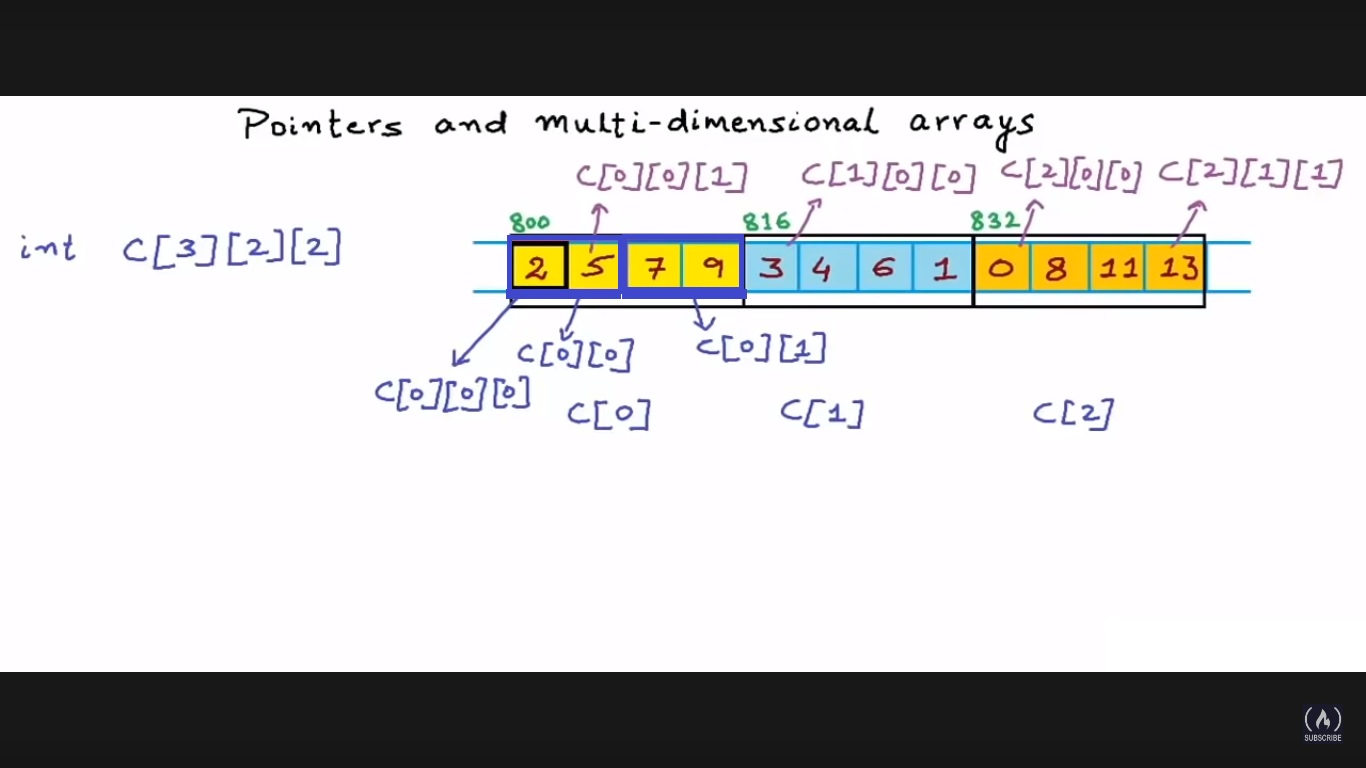 Pointers and multi-dimensional arrays
C[0][0][1] C[1][0][0] C[2][0][0] C[2][1][1]
800 816 832
int C[3][2][2]
2 5 7 9 3 4 6 1 0 8 11 13
C[0][0] C[0][1]
C[0][0][0]
C[0] C[1] C[2]
SUBSCRIBE